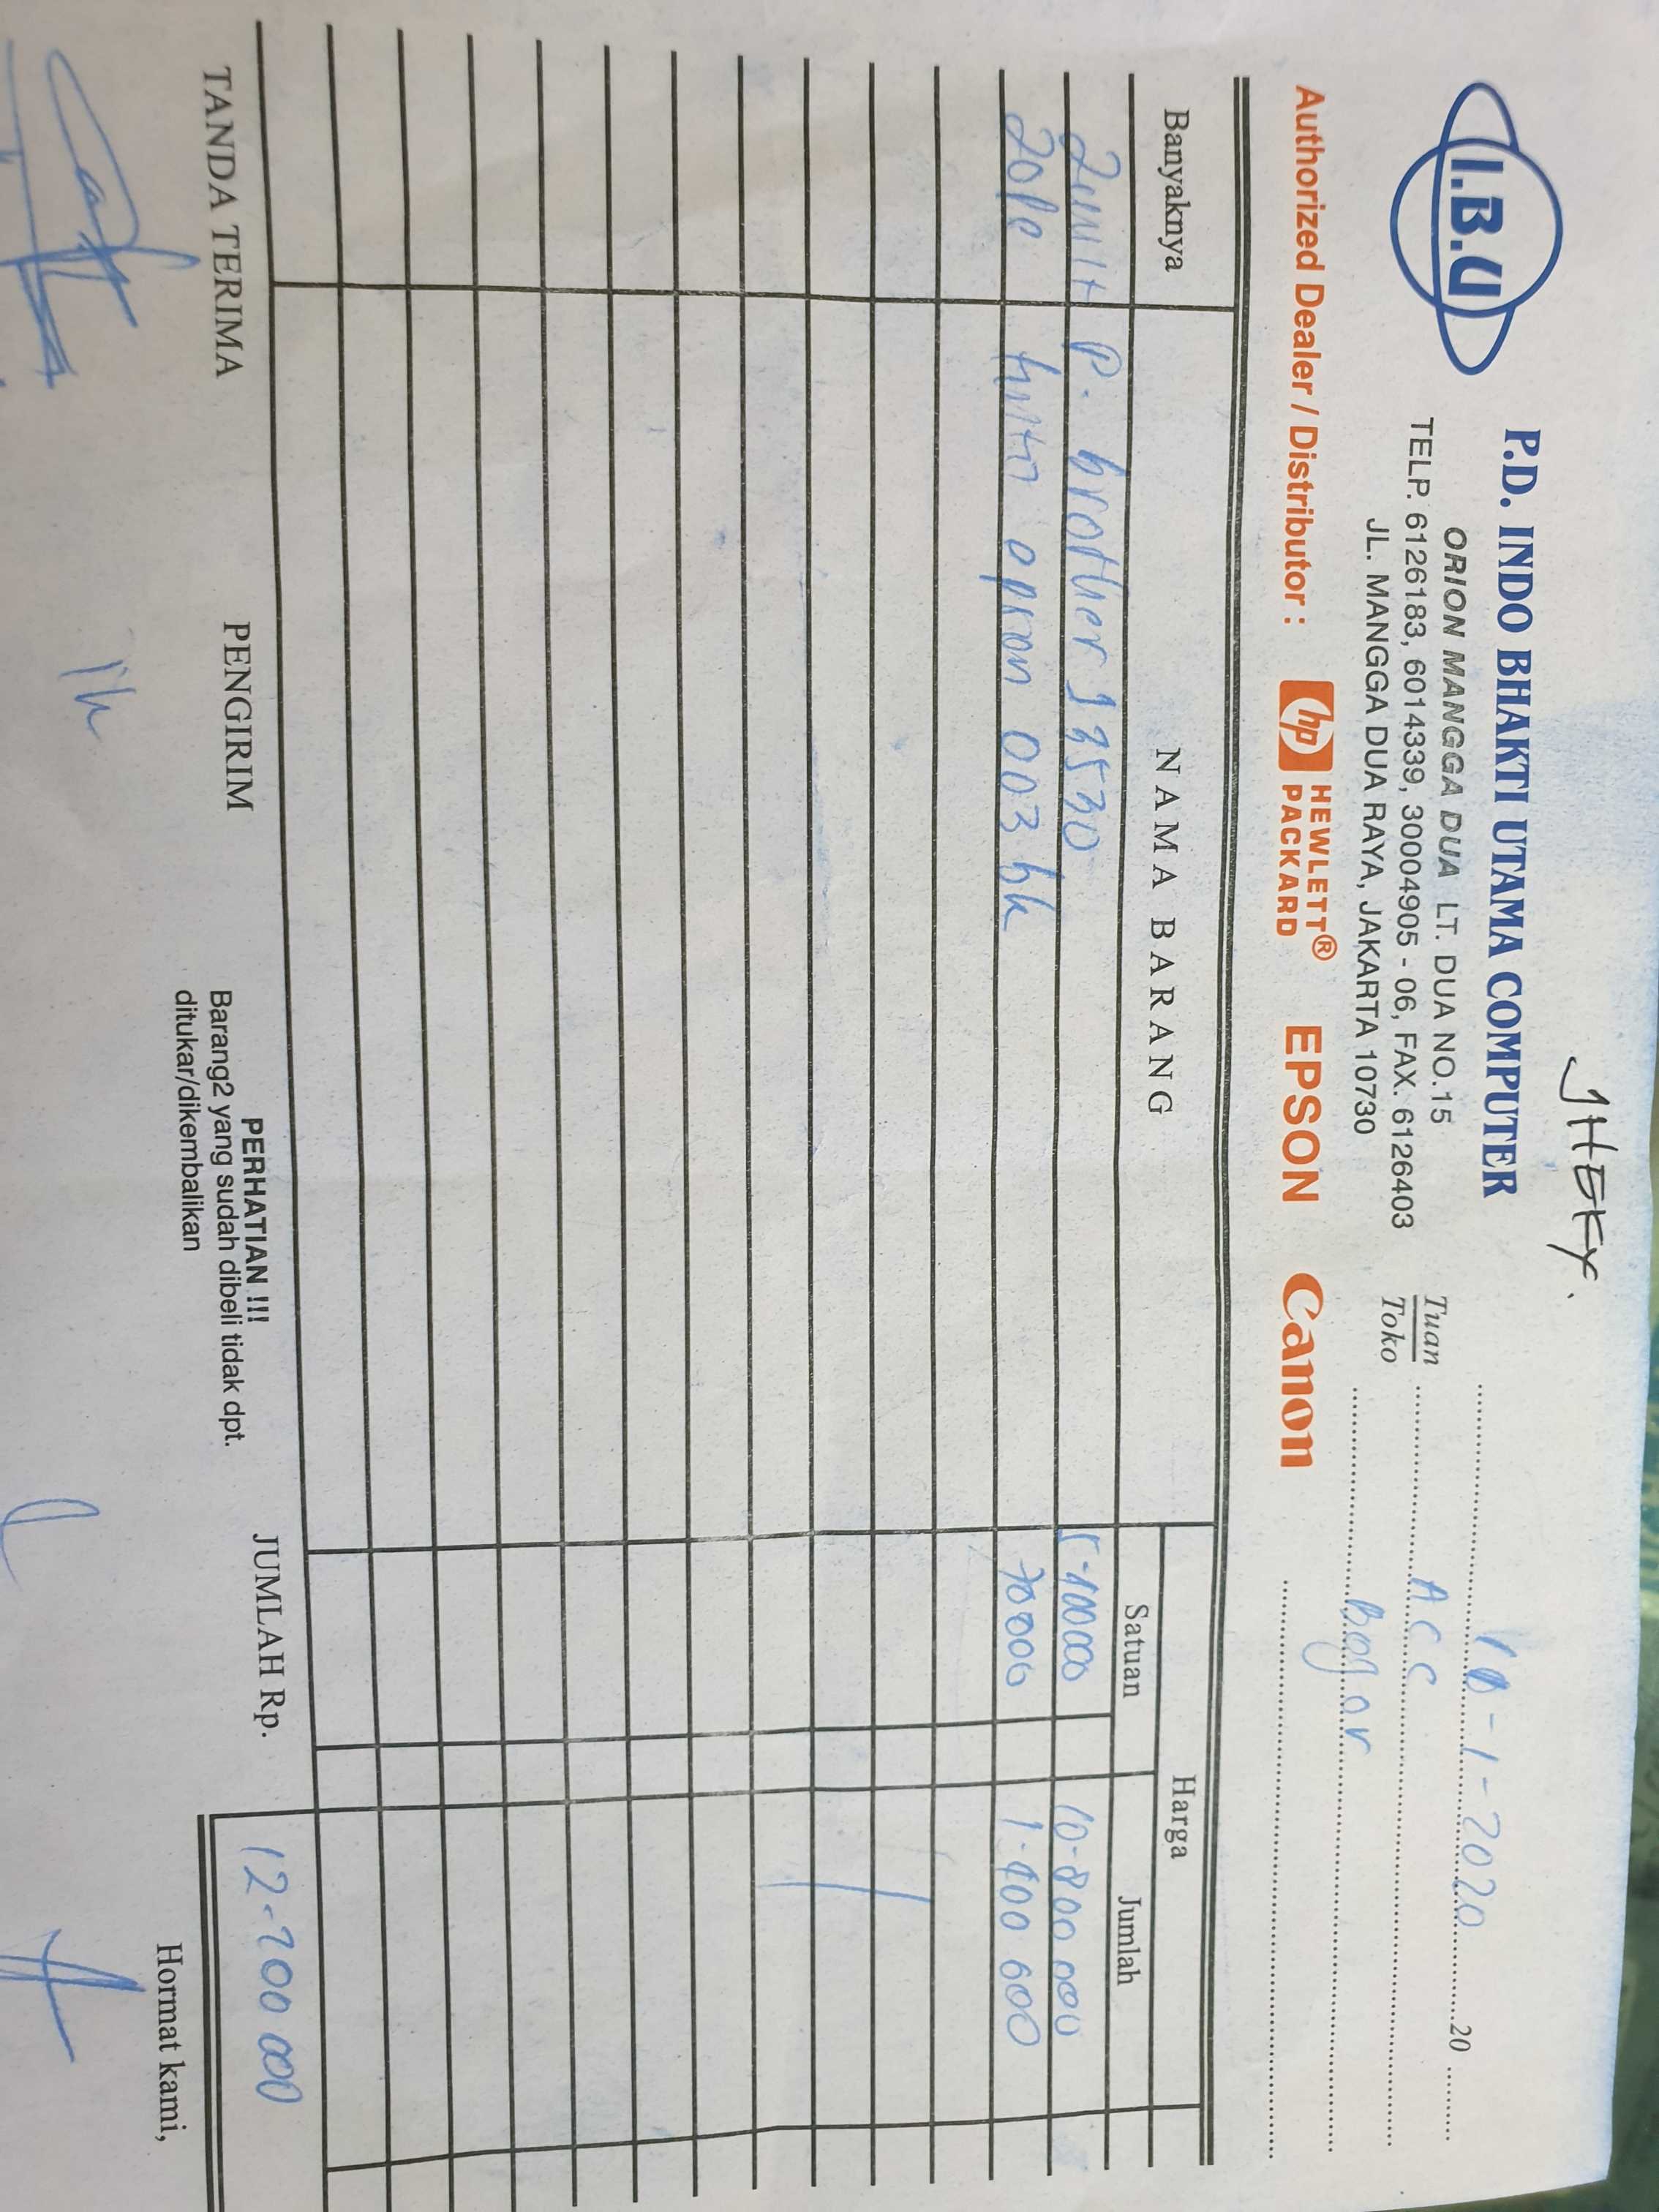 JHEKY.
I.B.U
P.D. INDO BHAKTI UTAMA COMPUTER
ORION MANGGA DUA LT. DUA NO.15
TELP. 6126183, 6014339, 30004905 - 06, FAX. 6126403
JL. MANGGA DUA RAYA, JAKARTA 10730
10-1-2020 20
Tuan
Toko
ACC
Bogor
Authorized Dealer / Distributor : hp HEWLETT® PACKARD EPSON Canon
Banyaknya NAMA BARANG Harga
Satuan Jumlah
2unit P. brother 3530 5.400000 10.800 000
20 tinta epson 003 bk 70000 1.400 000
TANDA TERIMA PENGIRIM
PERHATIAN !!!
Barang2 yang sudah dibeli tidak dpt.
ditukar/dikembalikan
JUMLAH Rp. 12.200 000
Hormat kami,